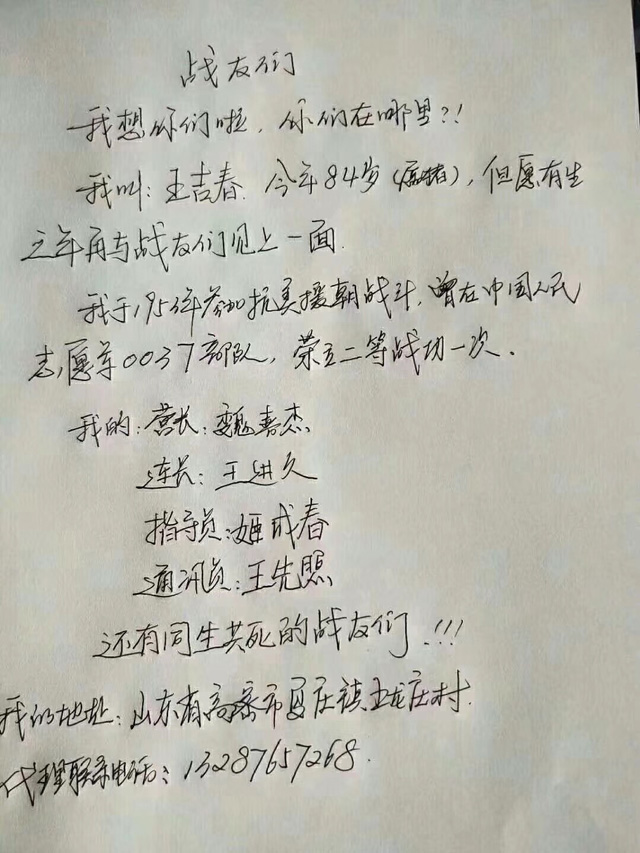 战友们
我想你们啦，你们在哪里?!
我叫：王吉春.今年84岁(属猪)，但愿有生
之年再与战友们见上一面.
我于1953年参加抗美援朝战斗，曾在中国人民
志愿军0037部队，荣立二等战功一次.
我的：营长：魏春杰
连长：王进久
指导员：姬成春
通讯员：王先照
还有同生共死的战友们!!!
我的地址：山东省高密市夏庄镇龙庄村.
代理联系电话：13287657268.